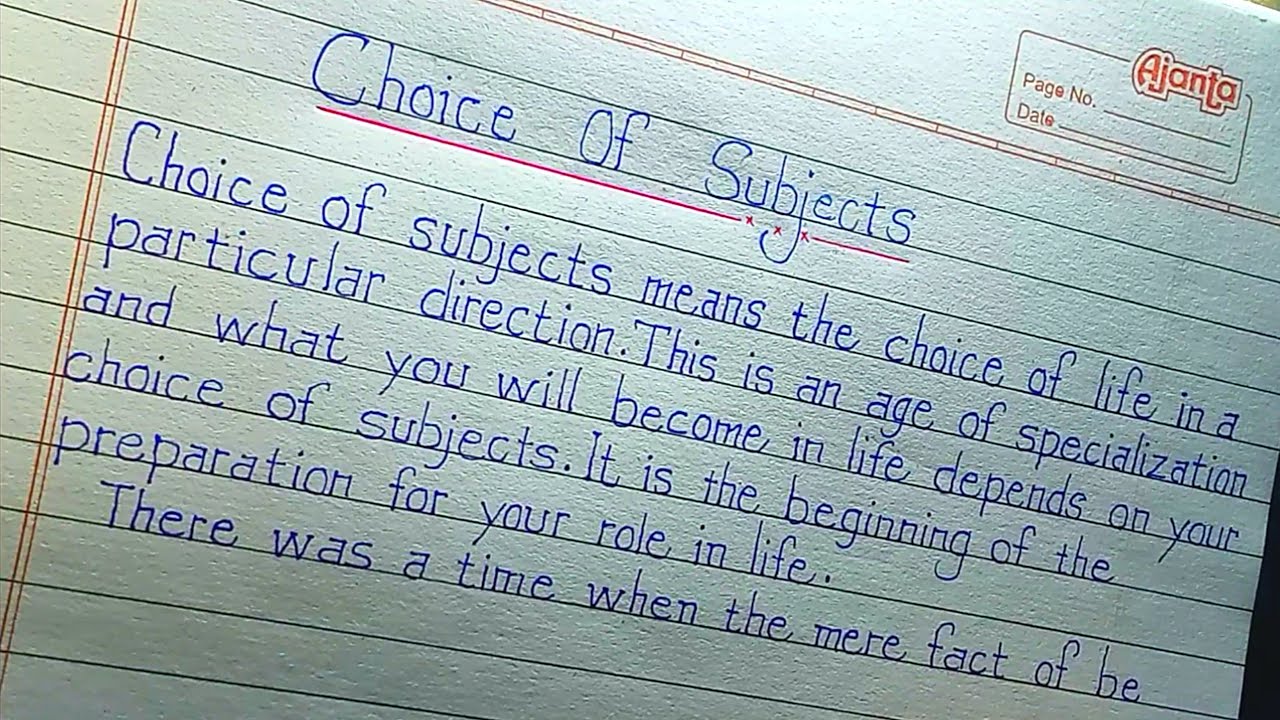 Ajanta
Page No.
Date
Choice Of Subjects
Choice of subjects means the choice of life in a
particular direction. This is an age of specialization
and what you will become in life depends on your
choice of subjects. It is the beginning of the
preparation for your role in life.
There was a time when the mere fact of be